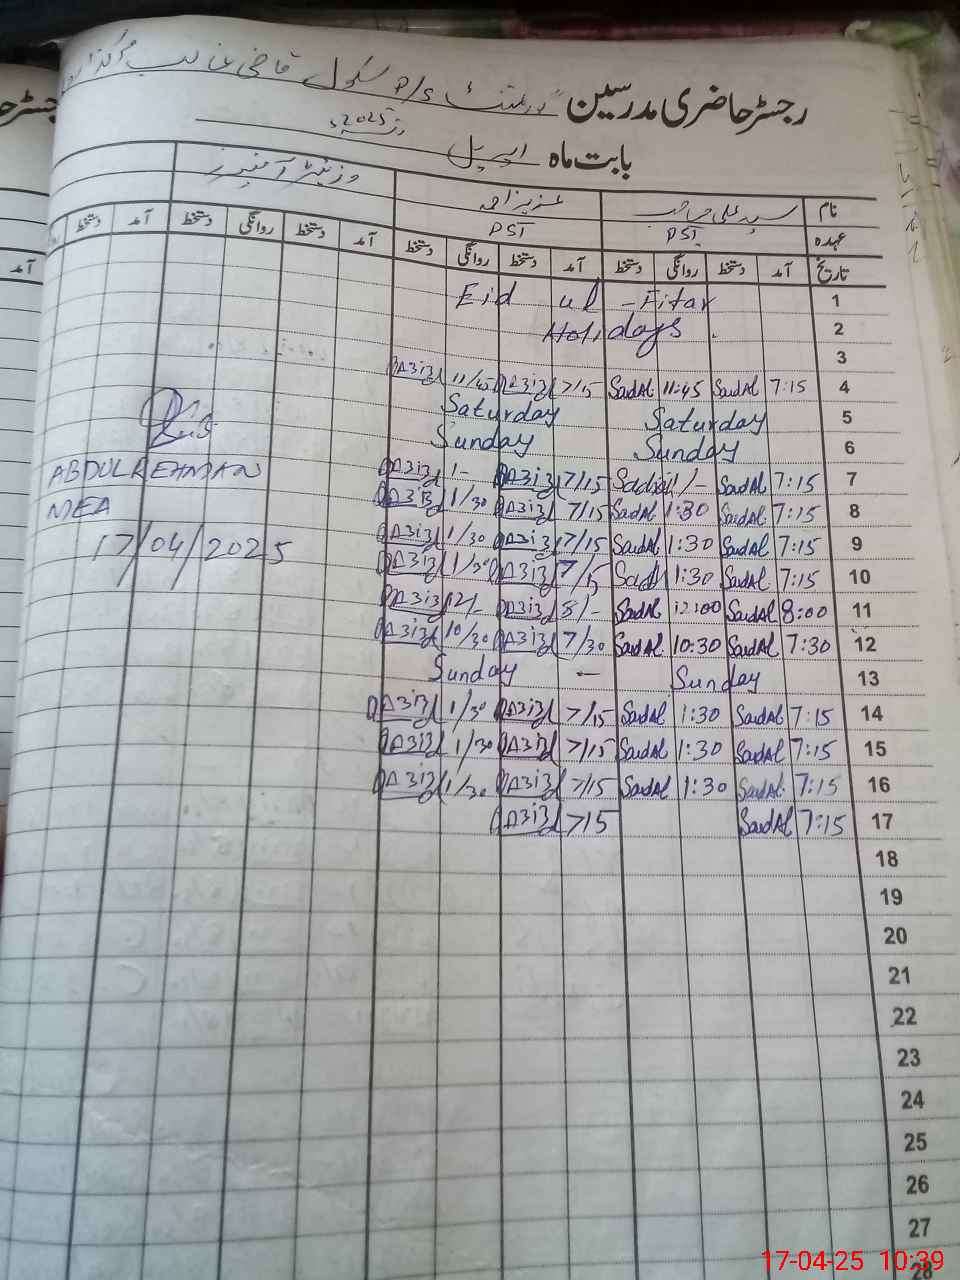 رجسٹر حاضری مدرسین گورنمنٹ P/S سکول قاضی غائب
بابت ماہ اپریل 2025ء
نام سید علی صاحب عزیز احمد
عہدہ PST PST
تاریخ آمد دستخط روانگی دستخط آمد دستخط روانگی دستخط آمد دستخط روانگی دستخط آمد دستخط
1 Eid ul - Fitar
2 Holidays
3
4 7:15 SaidAl 11:45 SaidAl 7/15 Aziz 11/45 Aziz
5 Saturday Saturday
6 Sunday Sunday
7 7:15 SaidAl 1/- SaidAl 7/15 Aziz 1/- Aziz
8 7:15 SaidAl 1:30 SaidAl 7/15 Aziz 1/30 Aziz
9 7:15 SaidAl 1:30 SaidAl 7/15 Aziz 1/30 Aziz
10 7:15 SaidAl 1:30 SaidAl 7/15 Aziz 1/30 Aziz
11 8:00 SaidAl 12:00 SaidAl 8/- Aziz 12/- Aziz
12 7:30 SaidAl 10:30 SaidAl 7/30 Aziz 10/30 Aziz
13 Sunday - Sunday
14 7:15 SaidAl 1:30 SaidAl 7/15 Aziz 1/30 Aziz
15 7:15 SaidAl 1:30 SaidAl 7/15 Aziz 1/30 Aziz
16 7:15 SaidAl 1:30 SaidAl 7/15 Aziz 1/30 Aziz
17 7:15 SaidAl 7/15 Aziz
18
19
20
21
22
23
24
25
26
27
28
ABDUL REHMAN
MEA
17/04/2025
17-04-25 10:39